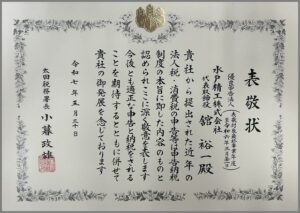 表敬状
優良申告法人
水戸精工株式会社
代表取締役 舘 裕一殿
貴社から提出された近年の
法人税・消費税の申告等は申告納税
制度の本旨に即した内容のものと
認められここに深く敬意を表します
今後とも適正な申告と納税をされる
ことを期待するとともに併せて
貴社の御発展を念じております
令和七年五月三十日
太田税務署長 小藤政雄